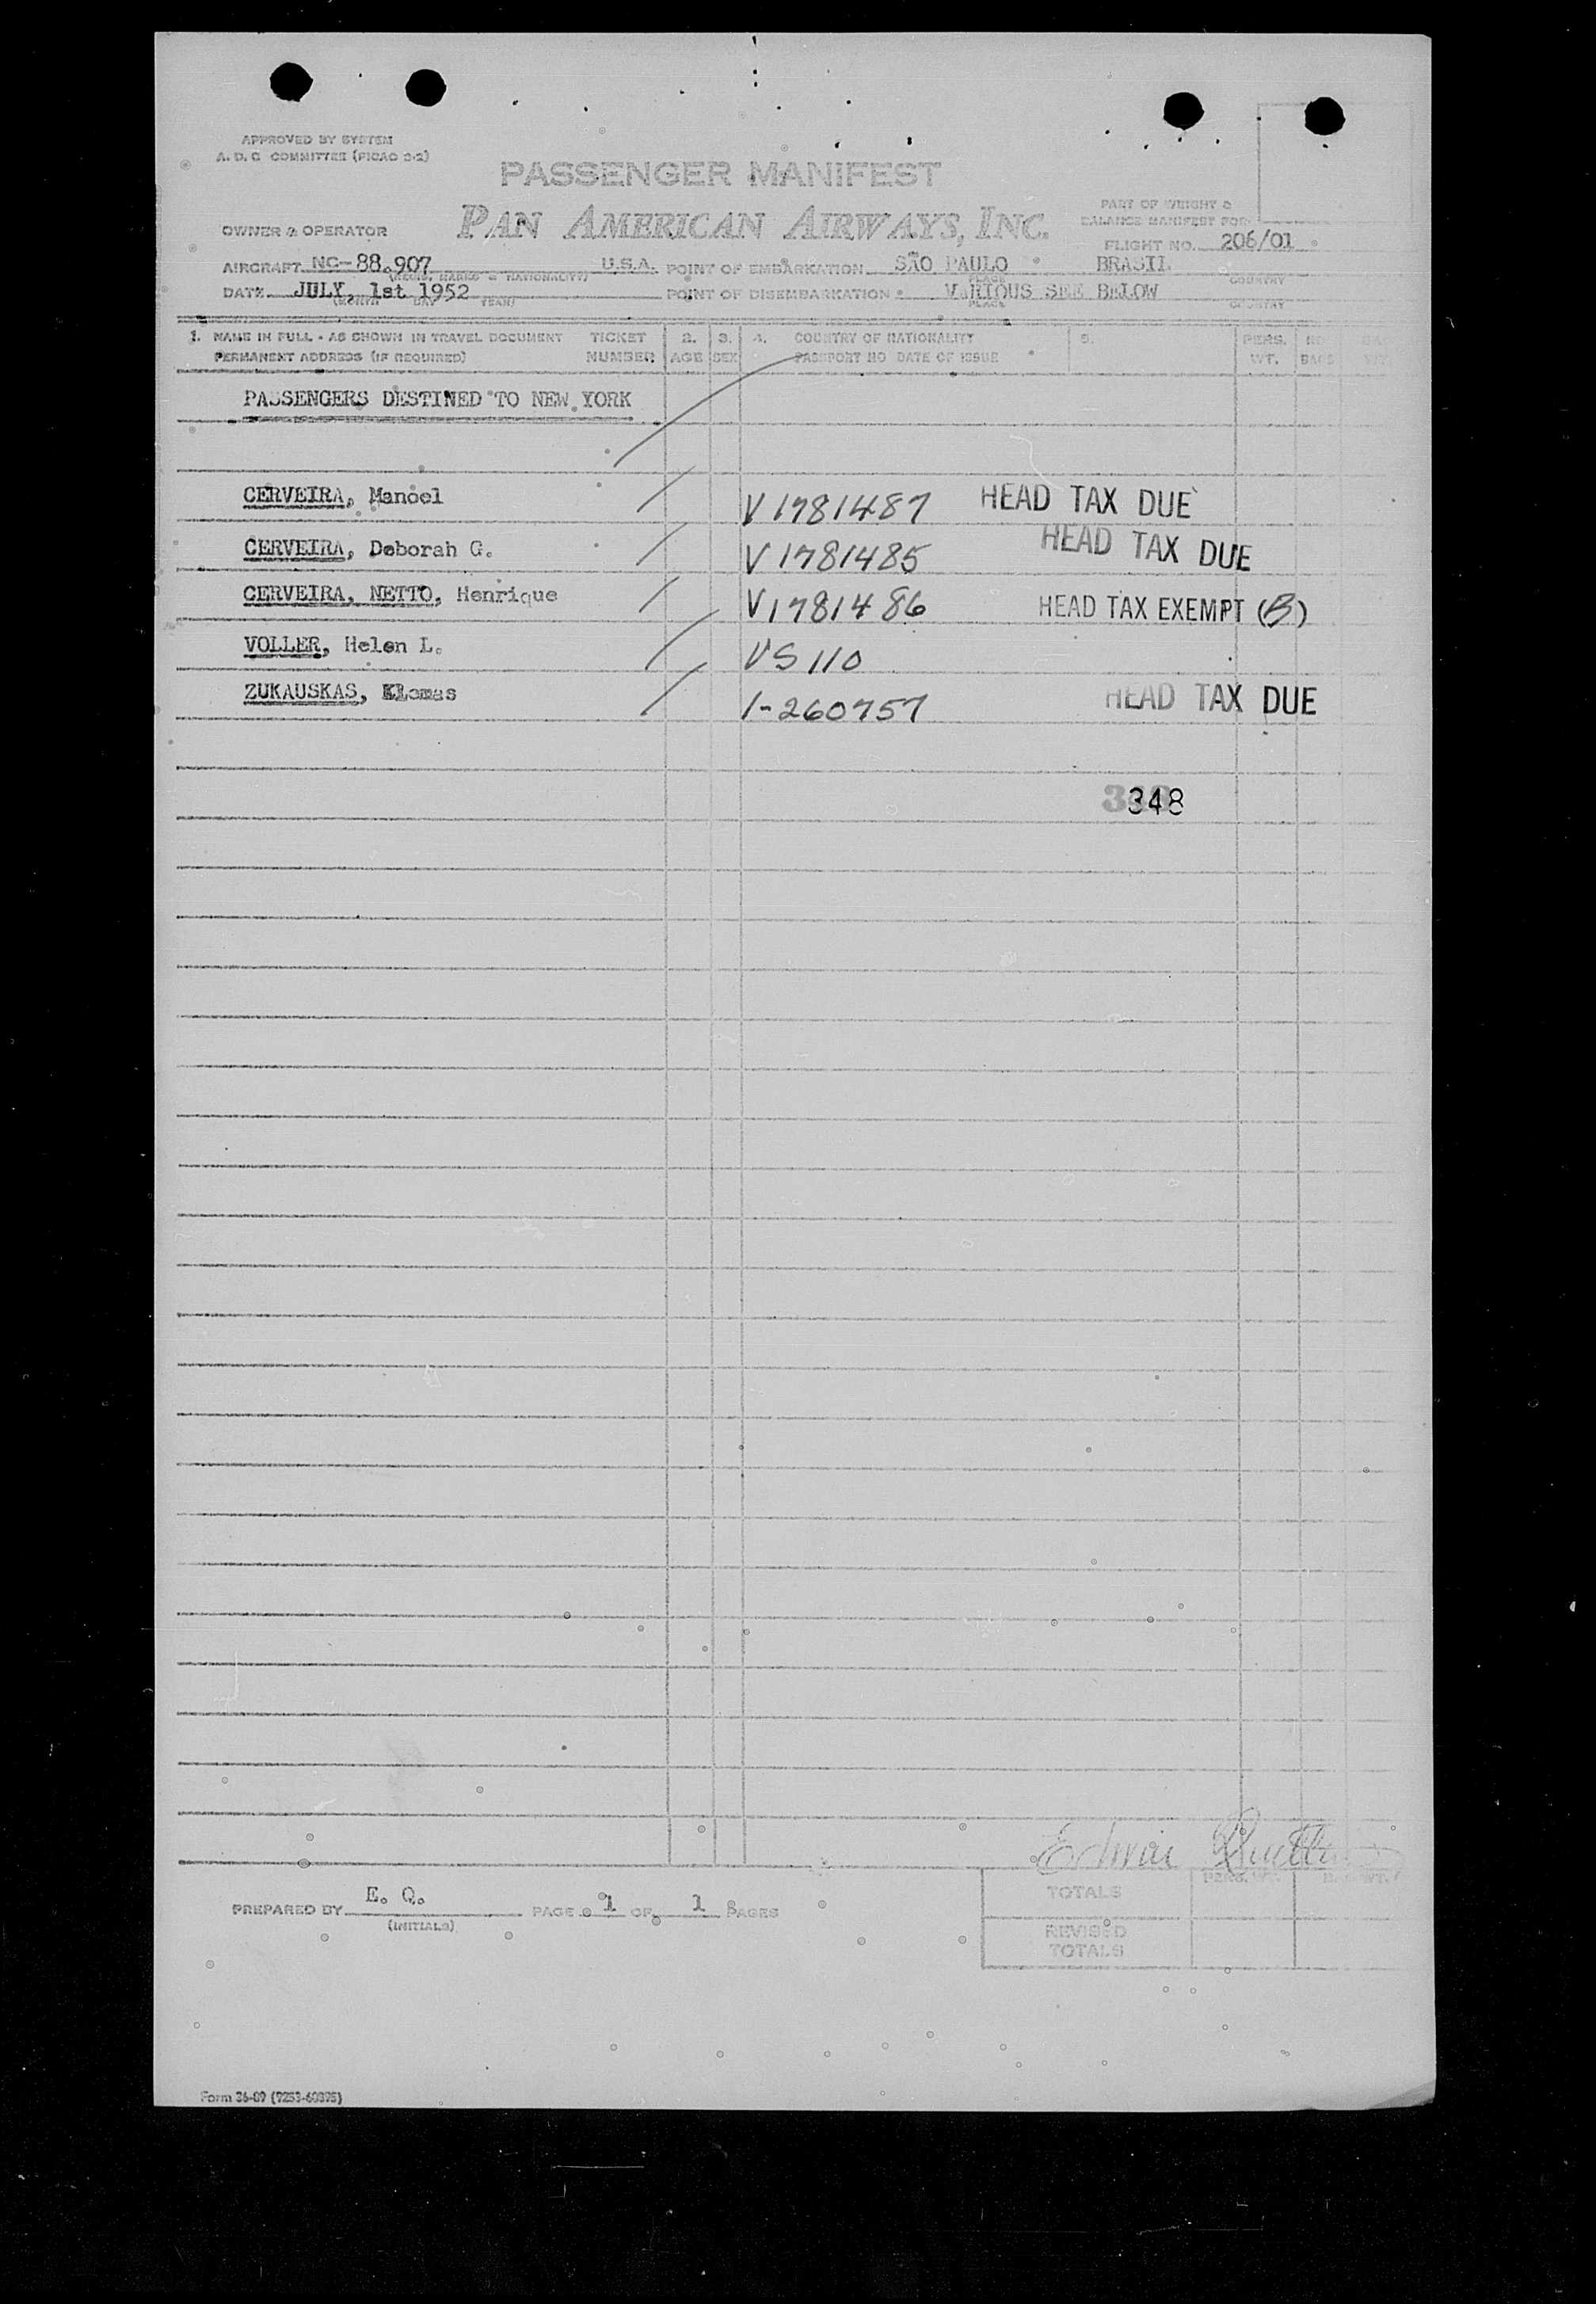 APPROVED BY SYSTEM
A. D. C COMMITTEE (PICAO 3-2)
PASSENGER MANIFEST
PAN AMERICAN AIRWAYS, INC.
PART OF WEIGHT &
BALANCE MANIFEST FOR
OWNER & OPERATOR
FLIGHT NO. 206/01
AIRCRAFT NC-88.907 U.S.A. POINT OF EMBARKATION SÃO PAULO BRASIL
(REGIS, MARKS & NATIONALITY) PLACE COUNTRY
DATE JULY 1st 1952 POINT OF DISEMBARKATION VARIOUS SEE BELOW
(MONTH DAY YEAR) PLACE COUNTRY
1. NAME IN FULL - AS SHOWN IN TRAVEL DOCUMENT TICKET 2. 3. 4. COUNTRY OF NATIONALITY 5. PERS. NO
PERMANENT ADDRESS (IF REQUIRED) NUMBER AGE SEX PASSPORT NO DATE OF ISSUE WT. BAGS
PASSENGERS DESTINED TO NEW YORK
CERVEIRA, Manoel V1781487 HEAD TAX DUE
CERVEIRA, Deborah G. V1781485 HEAD TAX DUE
CERVEIRA, NETTO, Henrique V1781486 HEAD TAX EXEMPT (B)
VOLLER, Helen L. VS110
ZUKAUSKAS, Klomas 1-260757 HEAD TAX DUE
348
PERS. WT.
TOTALS
PREPARED BY E. Q. PAGE 1 OF 1 PAGES
(INITIALS)
REVISED
TOTALS
Form 36-89